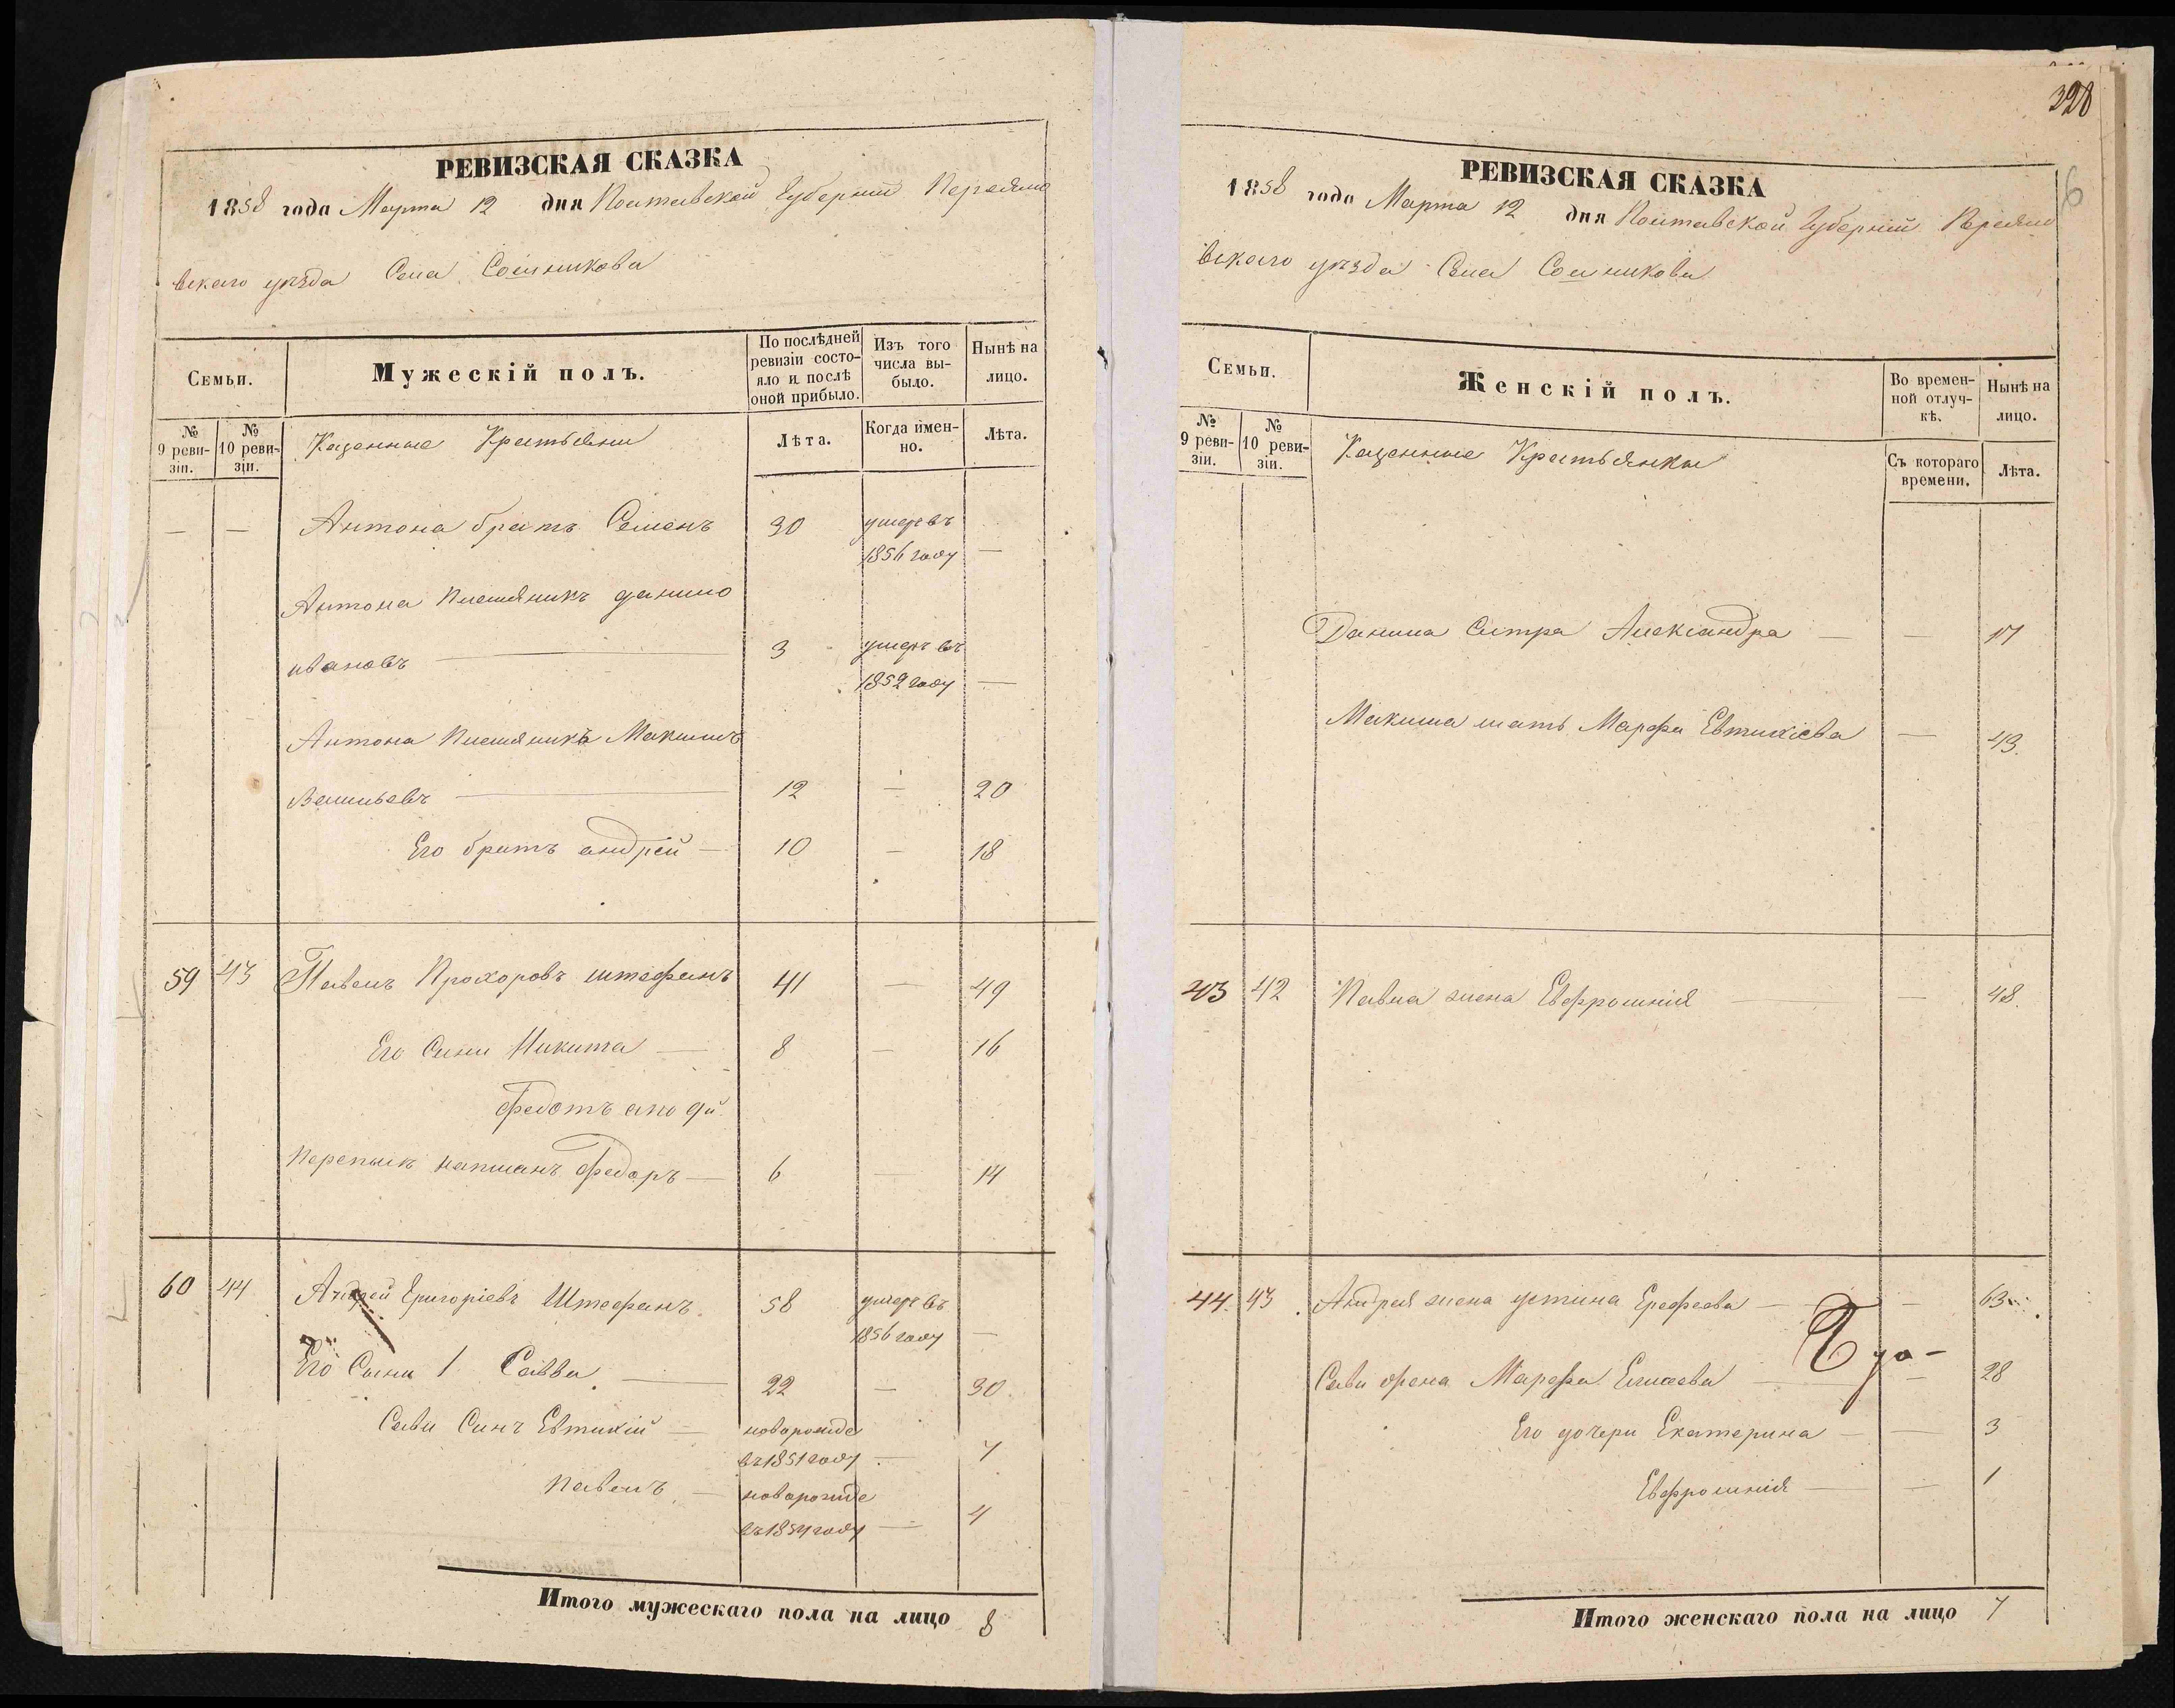 РЕВИЗСКАЯ СКАЗКА
1858 года Марта 12 дня Полтавской Губернии Переясла
вскаго уезда Села Сошникова
Семьи.
Мужескій полъ.
По послѣдней ревизіи состояло и послѣ оной прибыло.
Изъ того числа выбыло.
Нынѣ на лицо.
№ 9 ревизіи.
№ 10 ревизіи.
Казенные Крестьяни
Лѣта.
Когда имен-но.
Лѣта.
— — Антона братъ Семенъ 30 умеръ въ
1856 году —
Антона племяникъ данило
ивановъ — 3 умеръ въ
1852 году —
Антона племяникъ Максимъ
Васильевъ — 12 — 20
Его братъ андрей — 10 — 18
59 43 Павелъ Прохоровъ штефанъ 41 — 49
Его Сини Никита — 8 — 16
Федотъ ано ди.
Перепыск написанъ Федоръ — 6 — 14
60 44 Андрей Григоріевъ Штефанъ. 58 умеръ въ
1856 году —
Его Сыны 1 Савва — 22 — 30.
Сави Синъ Евтихій — новорожде
въ 1851 году — 7
Павелъ — новорожде
въ 1854 году — 4
Итого мужескаго пола на лицо 8
328
6
РЕВИЗСКАЯ СКАЗКА
1858 года Марта 12 дня Полтавской Губерній Переясла
вскаго уезда Села Сошникова
Семьи.
Женскій полъ.
Во времен-ной отлуч-кѣ.
Нынѣ на лицо.
№ 9 реви-зіи.
№ 10 реви-зіи.
Казенные Крестьянки
Съ котораго времени.
Лѣта.
Данила Систра Александра — — 17
Максима мать Марфа Евтихіева — 43.
43 42 Павла жена Евфросинія — — 48.
44. 43 Андрея жена устина Ерофеева — — 63
Сави жена Марфа Елисеева — — 28
Его дочери Екатерина — — 3
Евфросинія — — 1
Итого женскаго пола на лицо 7